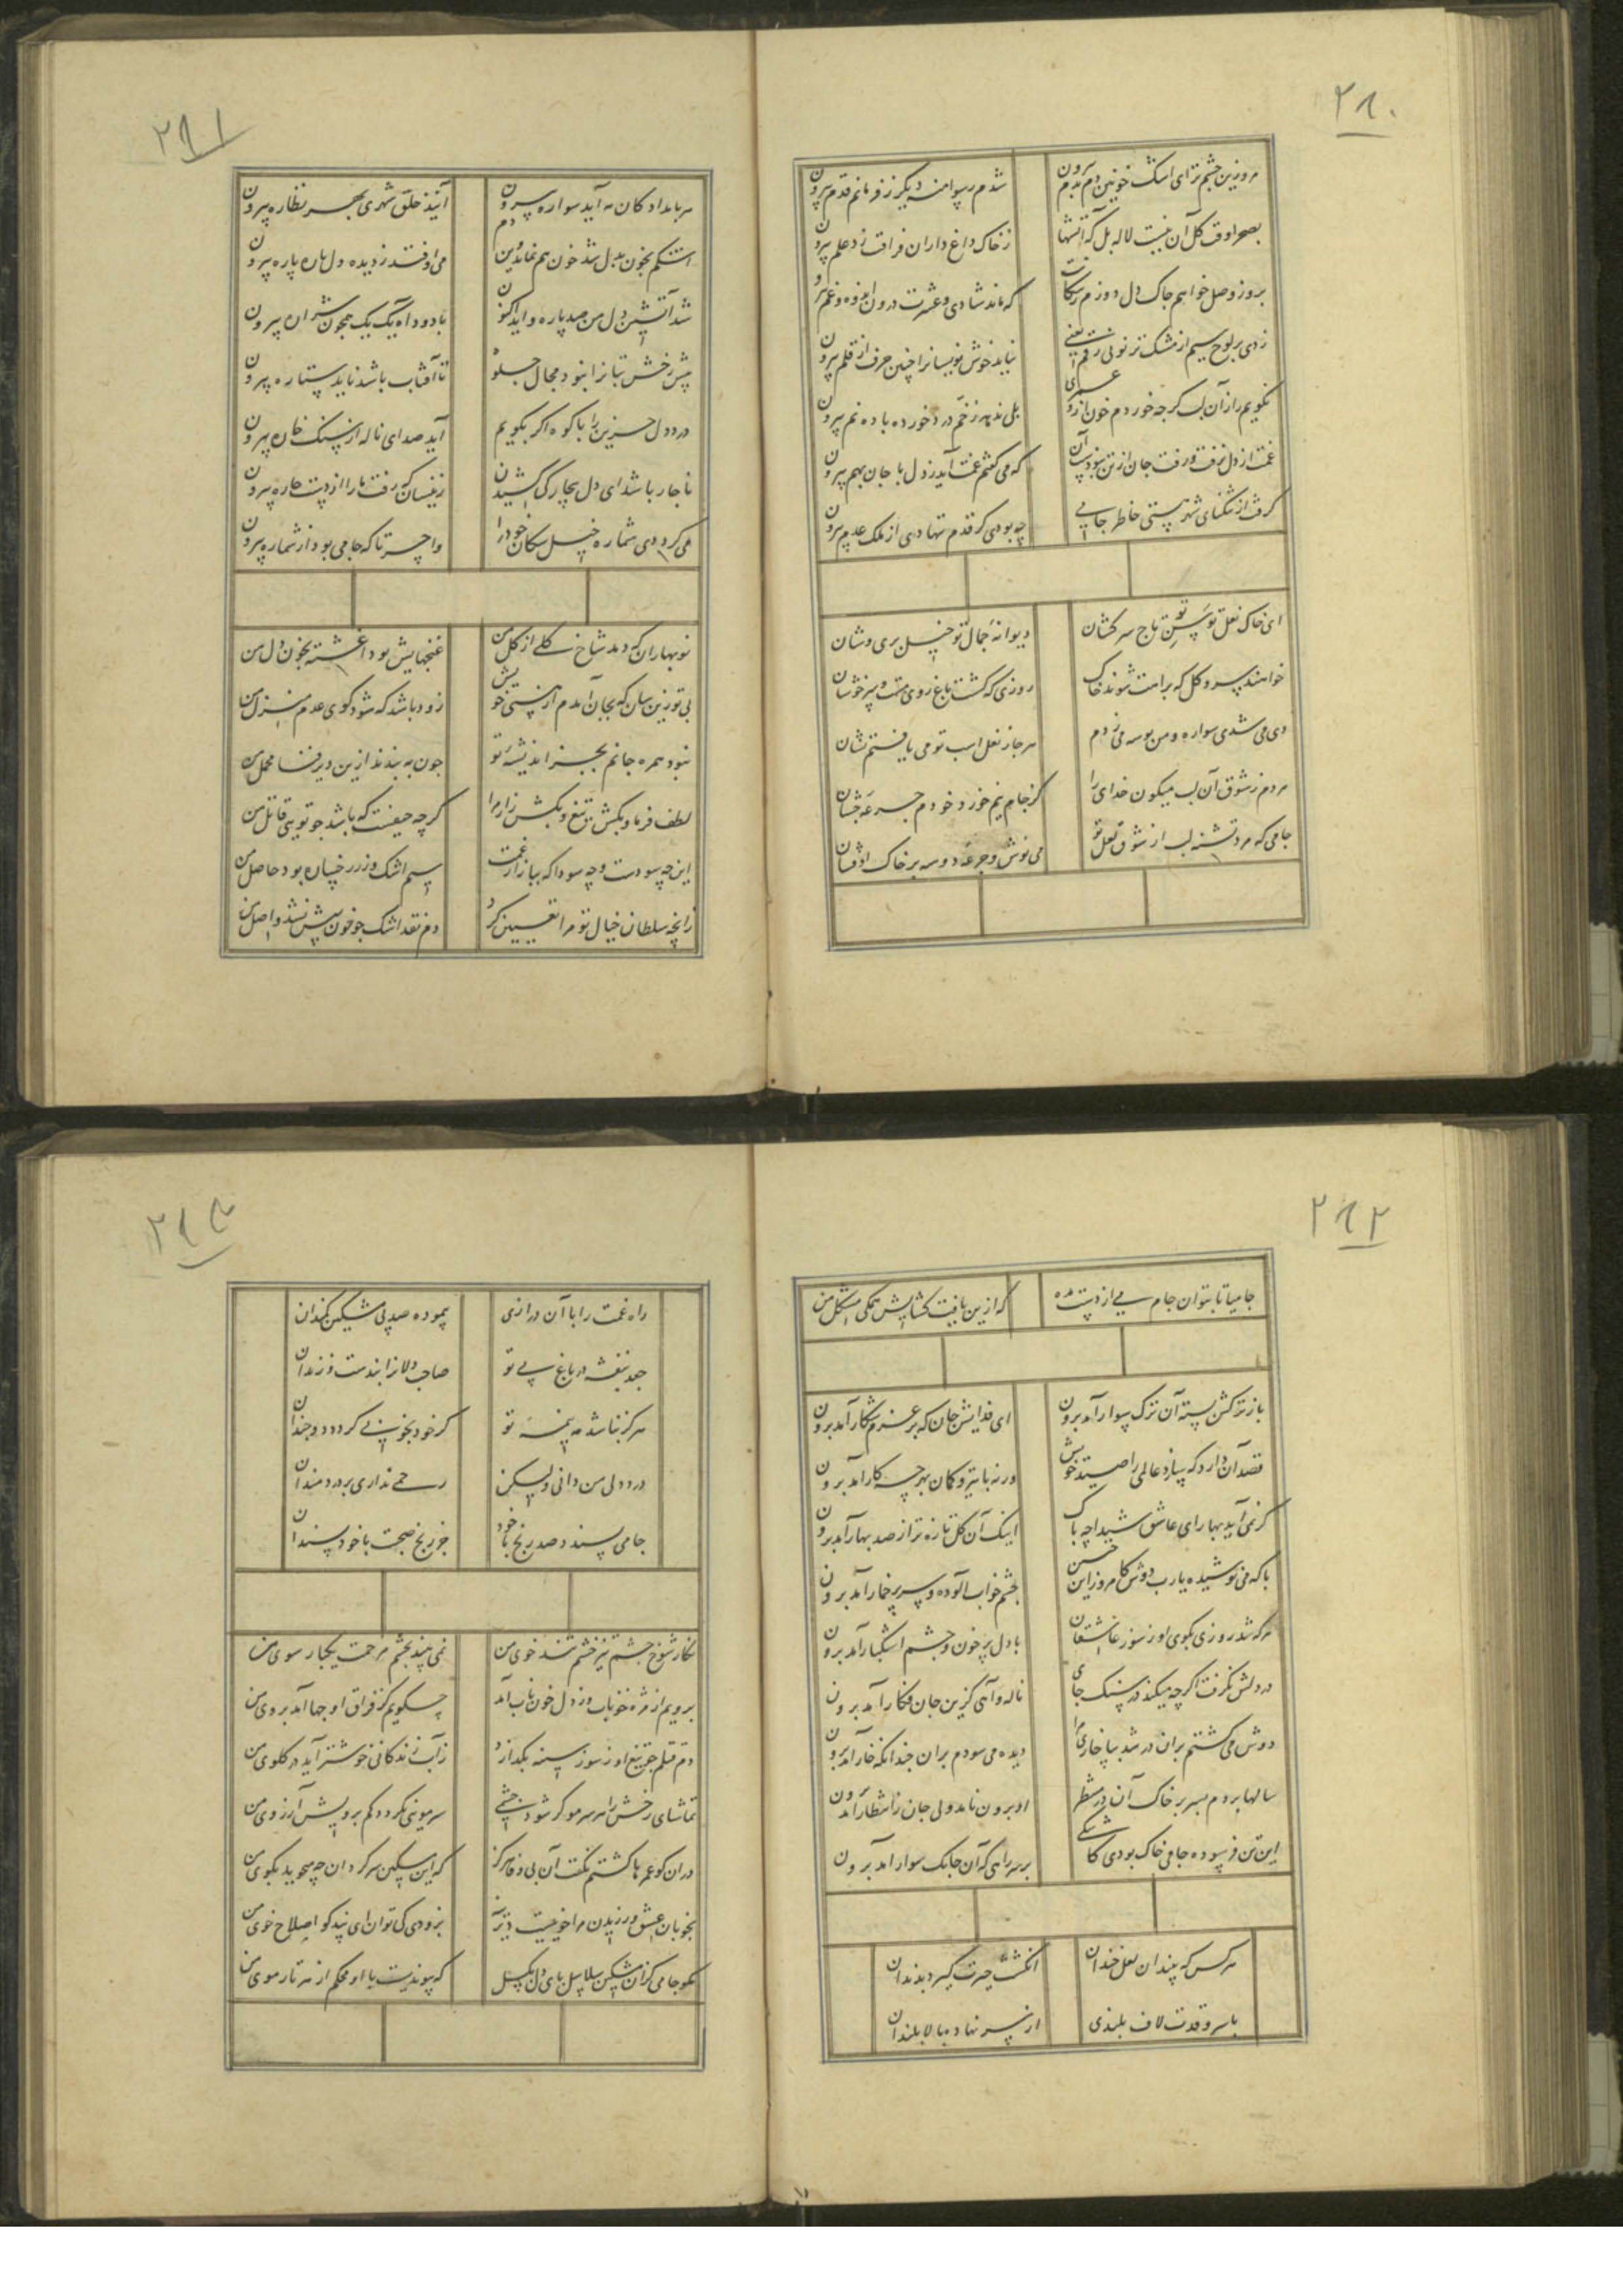 ۲۸۰
مرو زین چشم تر ای اشک خونین دم بدم بیرون
شدم رسوا منه دیگر ز فرمانم قدم بیرون
بصحرا وقت گل آن نیست لاله بل که آتشها
ز خاک داغ داران فراقت زد علم بیرون
بروز وصل خواهم چاک دل دوزم
که ماند شادی و عشرت درون اندوه و غم بیرون
زدی بر لوح سیم از مشک تر نونی رقم یعنی
نیاید خوش نویسانرا چنین حرف از قلم بیرون
نگویم راز آن لب گر چه خوردم خون ازو عمری
بلی ندهد زخم درد خورده باده نم بیرون
غمت از دل نرفت و رفت جان از تن نبود آسان
که می گفتم غمت آید ز دل با جان بهم بیرون
گرفت از تنگنای شهر هستی خاطر جامی
چه بودی گر قدم ننهادی از ملک عدم بیرون
ای خاک نعل توسن تو تاج سر کشان
دیوانهٔ جمال تو خیل پری وشان
خواهند سرو و گل که براهت شوند خاک
روزی که گشت باغ روی مست و سرخوشان
دی می شدی سواره و من بوسه می زدم
هر جا ز نعل اسب تو می یافتم نشان
مردم ز شوق آن لب میگون خدای را
کز جام نیم خورد خودم جرعه چشان
جامی که مرد تشنه لب از شوق لعل تو
می نوش و جرعه دو سه بر خاک او فشان
۲۸۱
هر بامداد کان مه آید سواره بیرون
آیند خلق شهری بهر نظاره بیرون
اشکم بخون بدل شد خون هم نماند وین دم
می اوفتد ز دیده دل پاره پاره بیرون
شد آتشین دل من صد پاره و آید اکنون
با دود آه یک یک همچون شراره بیرون
پیش رخش بتانرا نبود مجال جلوه
تا آفتاب باشد ناید ستاره بیرون
درد دل حزین را با کوه اگر بگویم
آید صدای ناله از سنگ خاره بیرون
ناچار باشد ای دل بیچارگی کشیدن
زینسان که رفت ما را از دست چاره بیرون
می کرد دی شماره خیل سگان خود را
واحسرتا که جامی بود از شماره بیرون
نوبهاران که دمد شاخ گلی از گل من
غنچهایش بود آغشته بخون دل من
بی تو زین سان که بجان آمدم از هستی خویش
زود باشد که شود کوی عدم منزل من
نبود همره جانم بجز اندیشه تو
چون به بندند ازین دیر فنا محمل من
لطف فرما و بکش تیغ و بکش زار مرا
گرچه حیفست که باشد چو تویی قاتل من
این چه سودست و چه سودا که ببازار غمت
سیم اشک و زر رخساره بود حاصل من
زانچه سلطان خیال تو مرا تعیین کرد
دم نقد اشک چو خون بیش نشد واصل من
۲۸۲
جامیا تا بتوان جام می از دست مده
که ازین یافت گشایش همگی مشکل من
باز ترکش بسته آن ترک سوار آمد برون
ای فدایش جان که بر عزم شکار آمد برون
قصد آن دارد که سازد عالمی را صید خویش
ورنه با تیر و کمان بهر چه کار آمد برون
گر نمی آید بهار ای عاشق شیدا چه باک
اینک آن گل تازه تر از صد بهار آمد برون
با که می نوشیده یارب دوش کامروز این حسن
چشم خواب آلوده و سر پر خمار آمد برون
هر که شد روزی بکوی او ز سوز عاشقان
با دل پر خون و چشم اشکبار آمد برون
در دلش نگرفت اگر چه میکند در سنگ جای
ناله و آهی کزین جان فگار آمد برون
دوش می گشتم بران در شد بپا خاری مرا
دیده می سودم بران چندانکه خار آمد برون
سالها بردم بسر بر خاک آن در منتظر
او برون نامد ولی جان ز انتظار آمد برون
این تن فرسوده جامی خاک بودی کاشکی
بر سر راهی که آن چابک سوار آمد برون
هر کس که بیند آن لعل خندان
انگشت حیرت گیرد بدندان
با سرو قدت لاف بلندی
از سر نهاده بالا بلندان
۲۸۳
راه غمت را با آن درازی
پیموده صد پی مشکین کمندان
جعد بنفشه در باغ بی تو
صاحب دلانرا بندست و زندان
هرگز نباشد مه پنبهٔ تو
گر خود بخوبی گردد دو چندان
درد دل من دانی ولیکن
رحمی نداری بر دردمندان
جامی پسندد صد رنج با خود
جز رنج صحبت با خود پسندان
نگار شوخ چشم تیز خشم تند خوی من
نمی بیند بچشم مرحمت یکبار سوی من
برویم از مژه خوناب وز دل خون ناب آمد
چگویم کز فراق او چها آمد بروی من
دم قتلم چو تیغ او ز سوز سینه بگدازد
ز آب زندگانی خوشتر آید در گلوی من
تماشای رخش را هر سر مو گر شود چشمی
سر مویی نگردد کم برویش آرزوی من
دران کو عمرها گشتم نگفت آن بی وفا هرگز
که این مسکین سرگردان چه میجوید بکوی من
بخوبان عشق ورزیدن مرا خوییست دیرینه
بزودی کی توان ای نیکو اصلاح خوی من
مگو جامی کزان مشکین سلاسل پای دل بگسل
که پیوندیست با او محکم از هر تار موی من